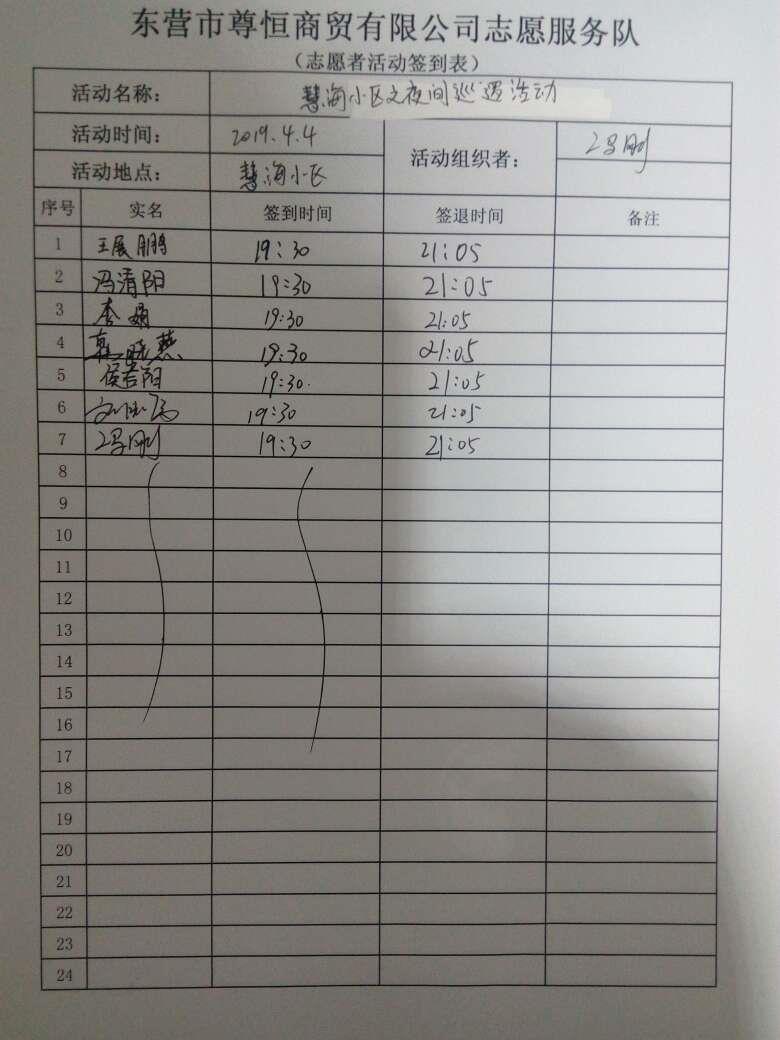 东营市尊恒商贸有限公司志愿服务队
（志愿者活动签到表）
活动名称： 慧海小区之夜间巡逻活动
活动时间： 2019.4.4 活动组织者： 冯刚
活动地点： 慧海小区
序号 实名 签到时间 签退时间 备注
1 王展鹏 19:30 21:05
2 冯清阳 19:30 21:05
3 李娟 19:30 21:05
4 19:30 21:05
5 侯若阳 19:30. 21:05
6 19:30 21:05
7 冯刚 19:30 21:05
8
9
10
11
12
13
14
15
16
17
18
19
20
21
22
23
24